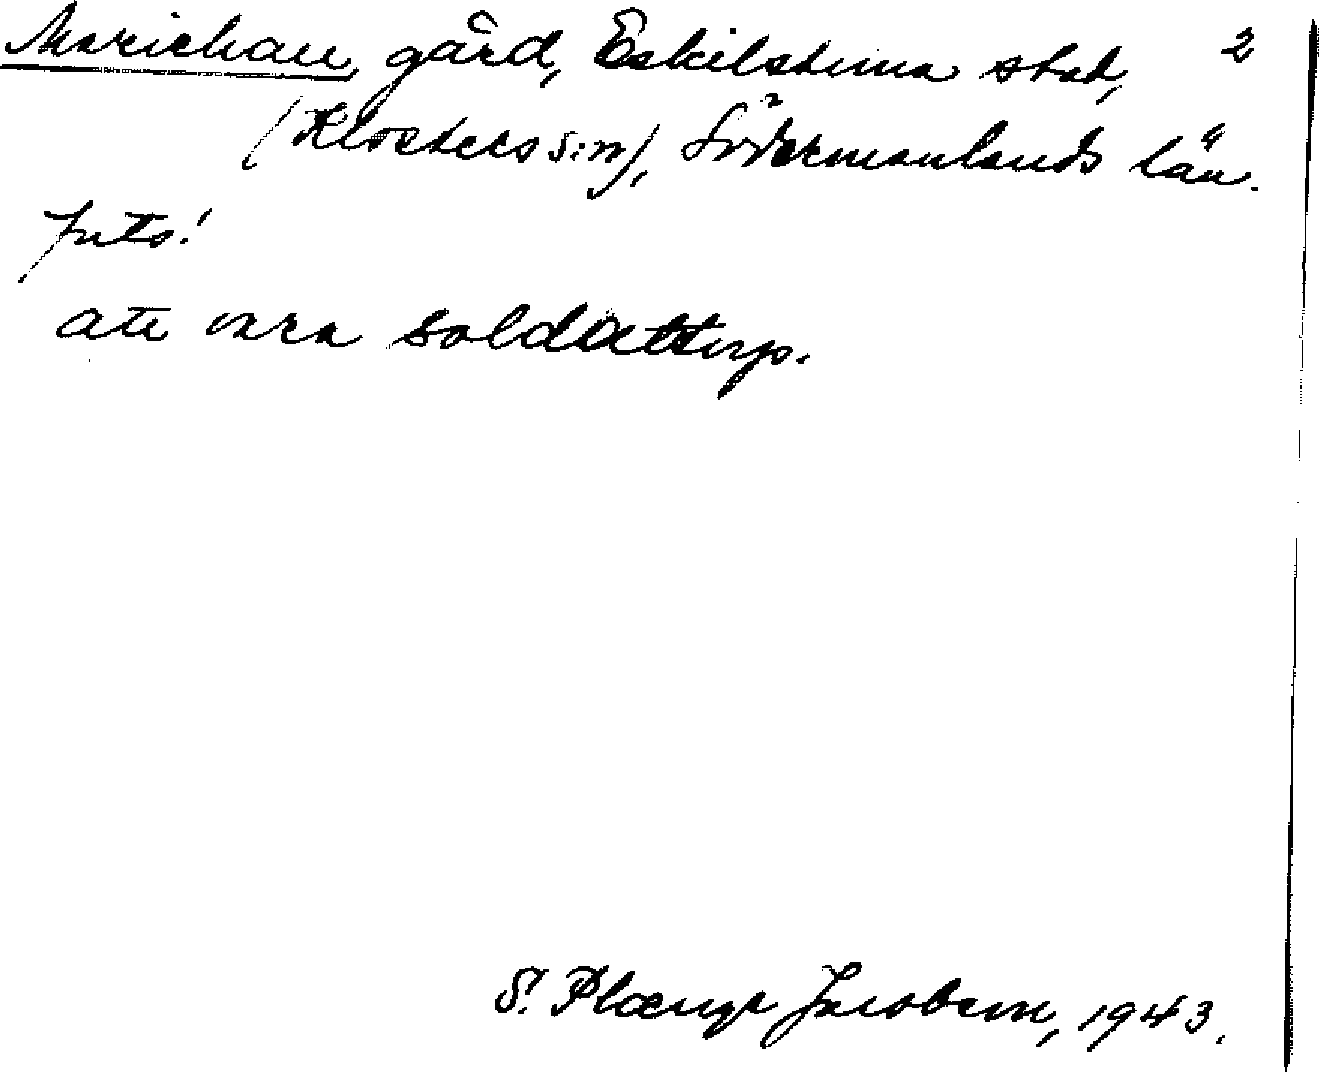 Mariehau gård, Eskilstuna stad, 2
(Klosters s:n), Södermanlands län.
forts!
att vara soldattorp.
S. Plænge Jacobson, 1943.